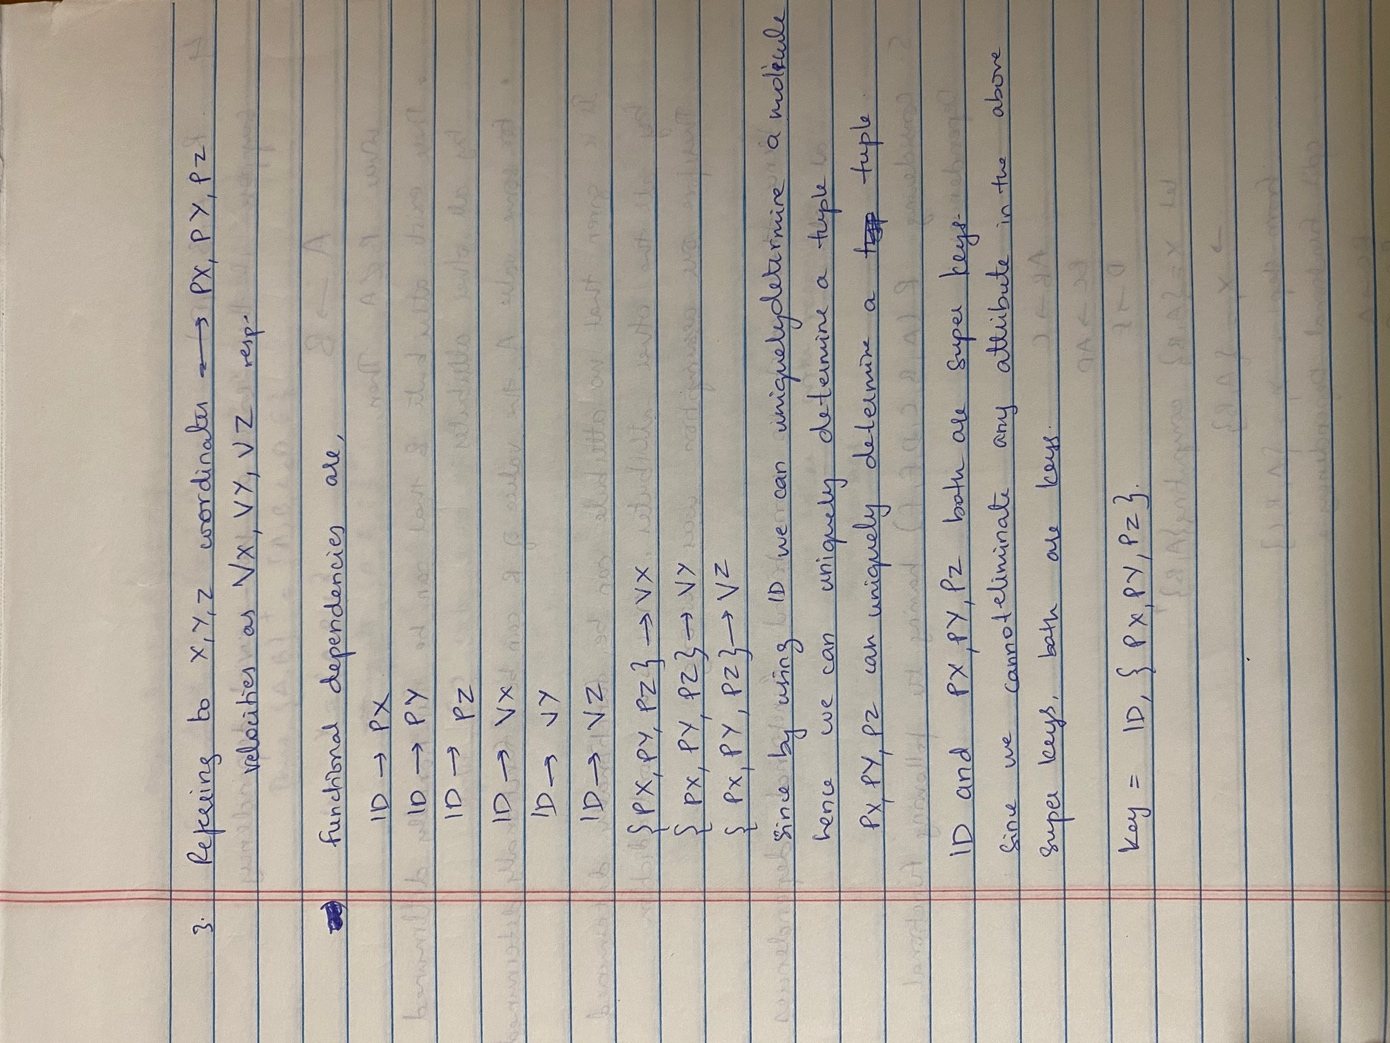 3. Refeering to X, Y, Z coordinates → PX, PY, PZ
velocities as VX, VY, VZ resp.
Functional dependencies are,
ID → PX
ID → PY
ID → PZ
ID → VX
ID → VY
ID → VZ
{ PX, PY, PZ } → VX
{ PX, PY, PZ } → VY
{ PX, PY, PZ } → VZ
Since by using ID we can uniquely determine a molecule
hence we can uniquely determine a tuple.
PX, PY, PZ can uniquely determine a tuple.
ID and PX, PY, PZ both are super keys.
Since we cannot eliminate any attribute in the above
super keys, both are keys.
Key = ID, { PX, PY, PZ }.